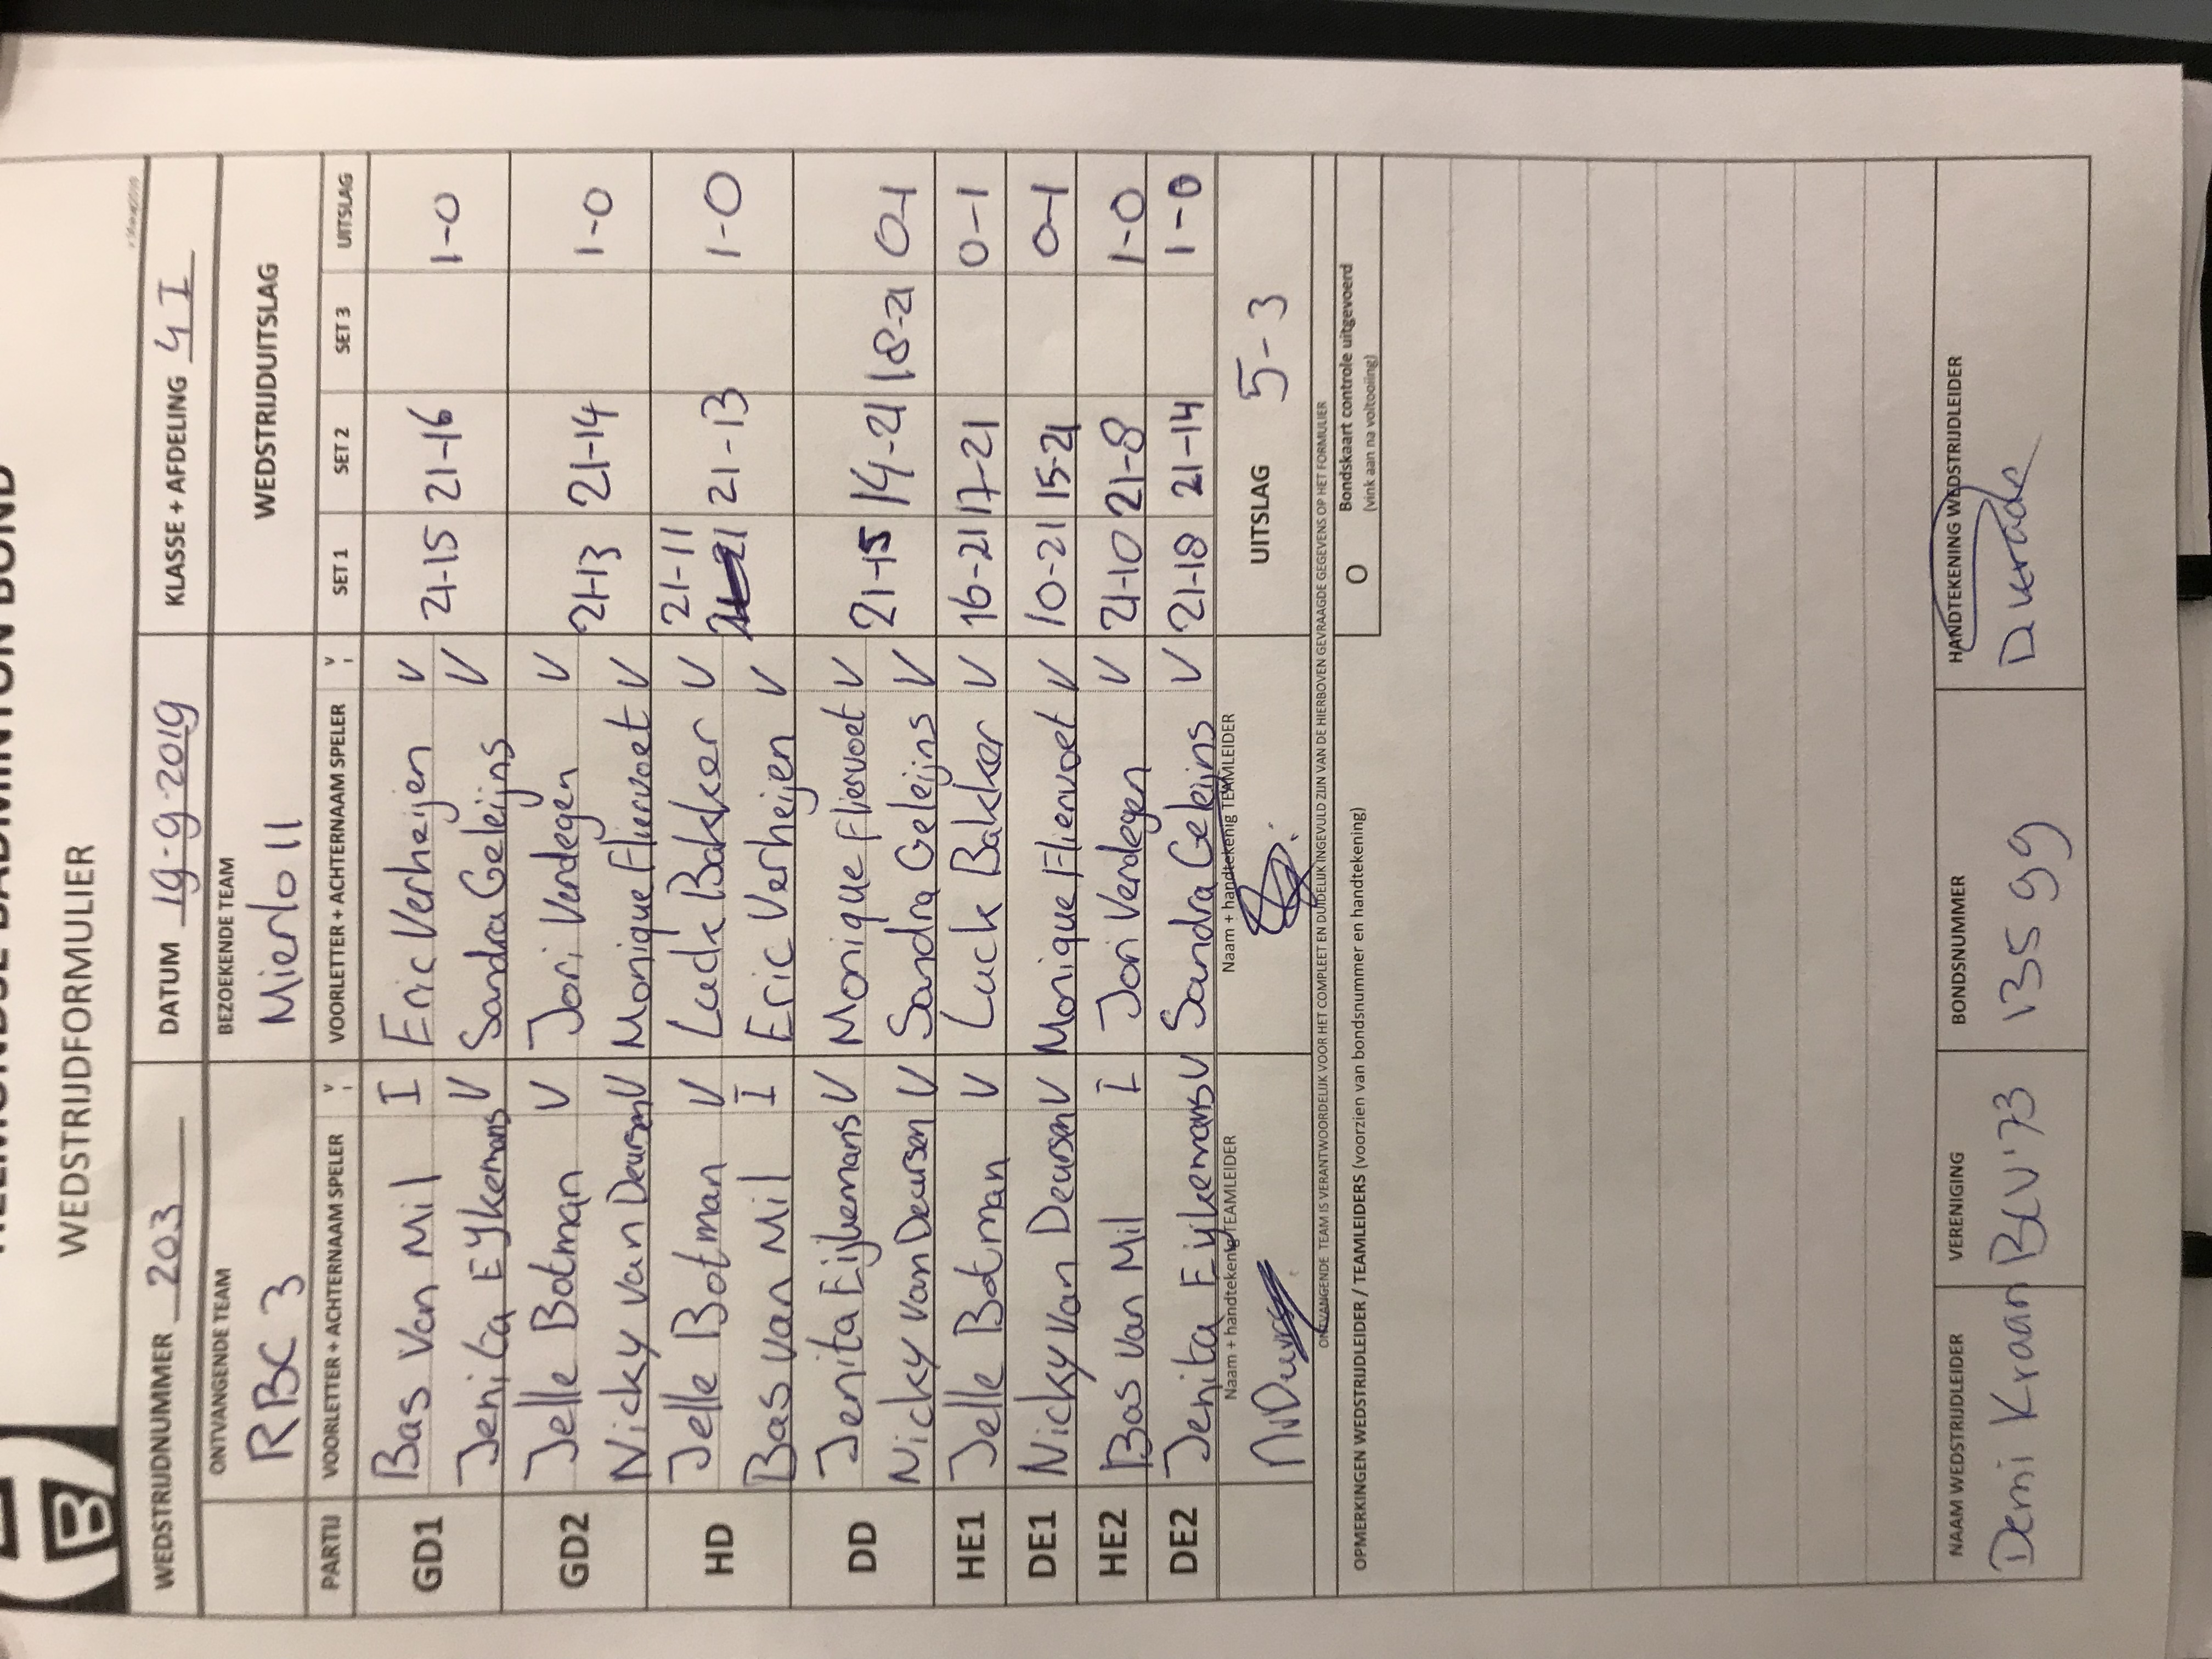 WEDSTRIJDFORMULIER
WEDSTRIJDNUMMER 203 DATUM 19-9-2019 KLASSE + AFDELING 4 I
ONTVANGENDE TEAM BEZOEKENDE TEAM WEDSTRIJDUITSLAG
RBC 3 Mierlo 11
PARTIJ VOORLETTER + ACHTERNAAM SPELER V I VOORLETTER + ACHTERNAAM SPELER V I SET 1 SET 2 SET 3 UITSLAG
GD1 Bas Van Mil I Eric Verheijen V 21-15 21-16 1-0
Jenita Eykemans V Sandra Geleijns V
GD2 Jelle Botman V Jori Verdegen V 21-13 21-14 1-0
Nicky van Deursen V Monique Fliervoet V
HD Jelle Botman V Luck Bakker V 21-11 21-13 1-0
Bas van Mil I Eric Verheijen V
DD Jenita Eijkemans V Monique Fliervoet V 21-15 14-21 18-21 0-1
Nicky van Deursen V Sandra Geleijns V
HE1 Jelle Botman V Luck Bakker V 16-21 17-21 0-1
DE1 Nicky van Deursen V Monique Fliervoet V 10-21 15-21 0-1
HE2 Bas van Mil I Jori Verdegen V 21-10 21-8 1-0
DE2 Jenita Eijkemans V Sandra Geleijns V 21-18 21-14 1-0
Naam + handtekenig TEAMLEIDER Naam + handtekenig TEAMLEIDER UITSLAG 5-3
ONTVANGENDE TEAM IS VERANTWOORDELIJK VOOR HET COMPLEET EN DUIDELIJK INGEVULD ZIJN VAN DE HIERBOVEN GEVRAAGDE GEGEVENS OP HET FORMULIER
OPMERKINGEN WEDSTRIJDLEIDER / TEAMLEIDERS (voorzien van bondsnummer en handtekening) O Bondskaart controle uitgevoerd
(vink aan na voltooiing)
NAAM WEDSTRIJDLEIDER VERENIGING BONDSNUMMER HANDTEKENING WEDSTRIJDLEIDER
Demi Kraan BCV'73 13599